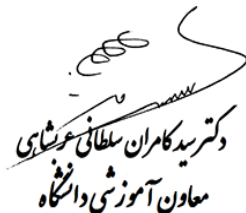 دکتر سید کامران سلطانی عربشاهی
معاون آموزشی دانشگاه